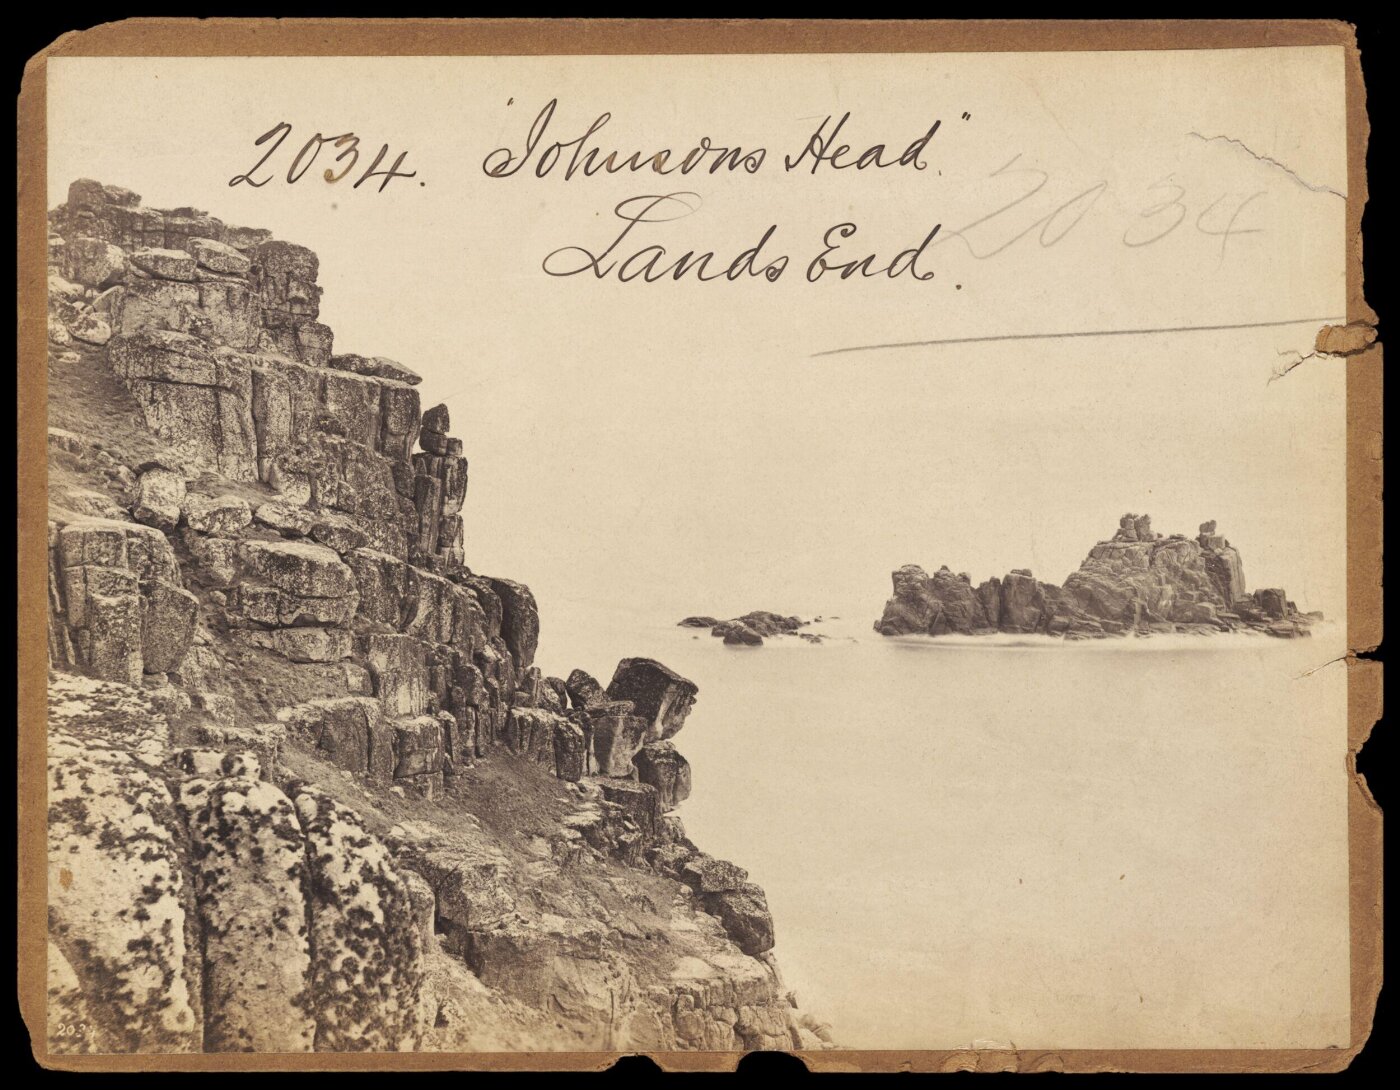 2034. "Johnsons Head"
Lands End.
2034
2034